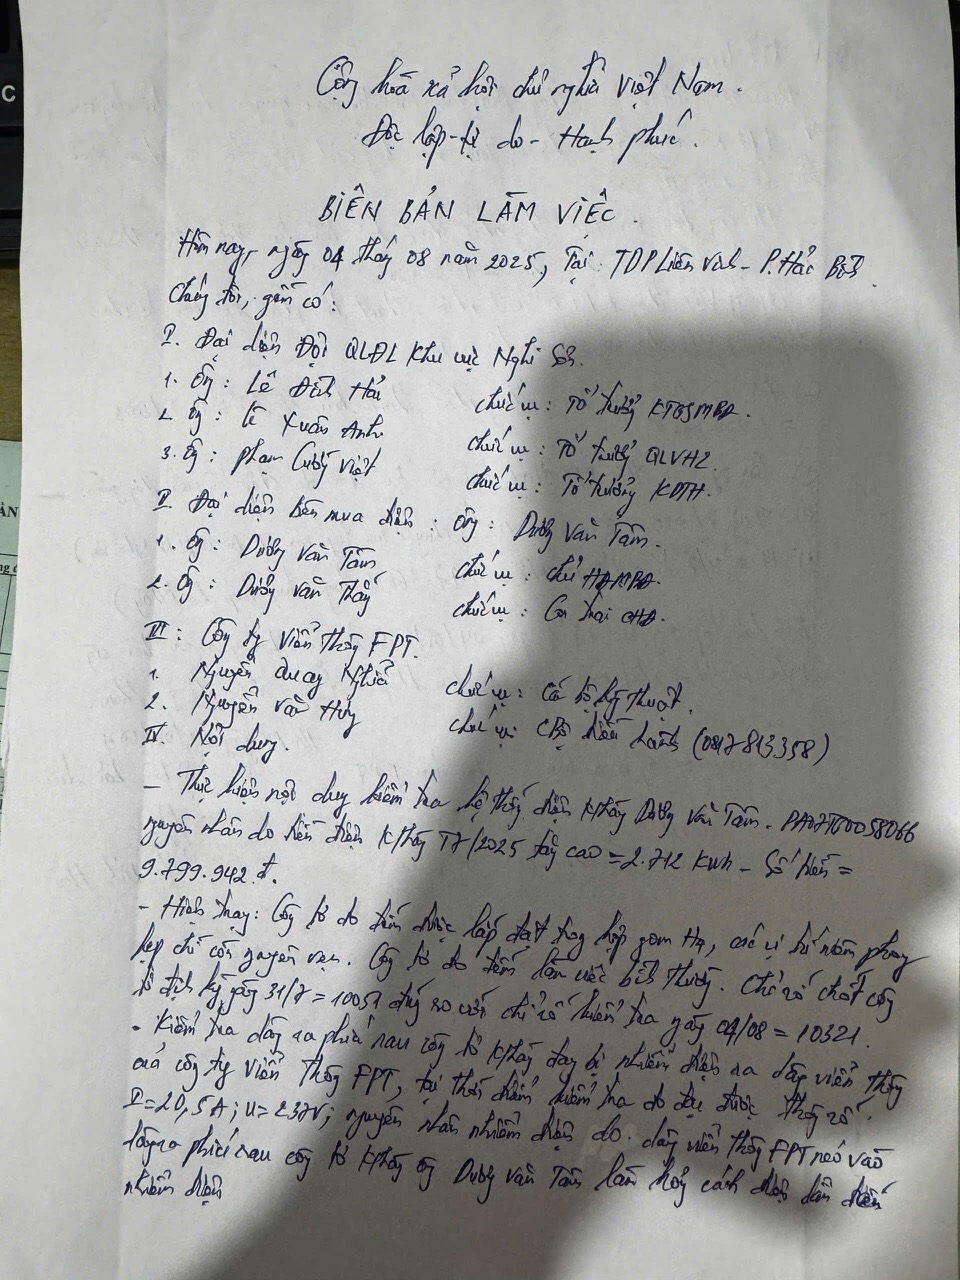 Cộng hoà xã hội chủ nghĩa Việt Nam.
Độc lập - tự do - Hạnh phúc.
BIÊN BẢN LÀM VIỆC.
Hôm nay, ngày 04 tháng 08 năm 2025, Tại: TDP Liên Vinh - P. Hải Bình
Chúng tôi, gồm có:
I. Đại diện Đội QLĐL Khu vực Nghi Sơn.
1. Ông: Lê Đình Hải chức vụ: Tổ trưởng KTGSMBĐ.
2. Ông: Lê Xuân Anh chức vụ: Tổ trưởng QLVH2.
3. Ông: Phạm Cường Việt chức vụ: Tổ trưởng KDTH.
II. Đại diện bên mua điện: Ông: Dương Văn Tâm.
1. Ông: Dương Văn Tâm chức vụ: chủ HĐMBĐ.
2. Ông: Dương Văn Thắng chức vụ: Con trai CHĐ.
III: Công ty Viễn thông FPT.
1. Nguyễn Quang Nghĩa chức vụ: Cán bộ kỹ thuật.
2. Nguyễn Văn Hưng chức vụ: CBộ điều hành (0817813358)
IV. Nội dung.
- Thực hiện nội dung kiểm tra hệ thống điện K/hàng Dương Văn Tâm - PA07TG0058066
nguyên nhân do tiền điện K/hàng T7/2025 tăng cao = 2.712 Kwh - Số tiền =
9.799.942 đ.
- Hiện trạng: Công tơ đo đếm được lắp đặt trong hộp gom H4, các vị trí niêm phong
kẹp chì còn nguyên vẹn. Công tơ đo đếm làm việc bình thường. Chỉ số chốt công
tơ định kỳ ngày 31/7 = 10051 đúng so với chỉ số kiểm tra ngày 04/08 = 10321.
- Kiểm tra dây ra phía sau công tơ K/hàng đang bị nhiễm điện ra dây viễn thông
của công ty Viễn Thông FPT, tại thời điểm kiểm tra đo đạc được thông số:
I = 20,5A; U = 237V; nguyên nhân nhiễm điện do dây viễn thông FPT néo vào
dây ra phía sau công tơ K/hàng ông Dương Văn Tâm làm hỏng cách điện dẫn đến
nhiễm điện